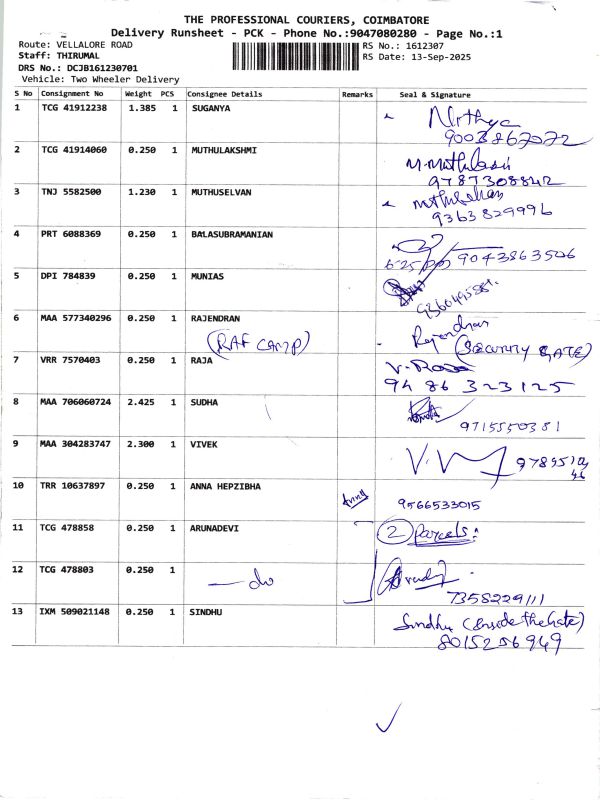 THE PROFESSIONAL COURIERS, COIMBATORE
Delivery Runsheet - PCK - Phone No.:9047080280 - Page No.:1
Route: VELLALORE ROAD RS No.: 1612307
Staff: THIRUMAL RS Date: 13-Sep-2025
DRS No.: DCJB161230701
Vehicle: Two Wheeler Delivery
S No Consignment No Weight PCS Consignee Details Remarks Seal & Signature
1 TCG 41912238 1.385 1 SUGANYA Nithya
9003867072
2 TCG 41914060 0.250 1 MUTHULAKSHMI
9787308842
3 TNJ 5582500 1.230 1 MUTHUSELVAN
9363829996
4 PRT 6088369 0.250 1 BALASUBRAMANIAN
6-25 pm 9043863506
5 DPI 784839 0.250 1 MUNIAS
6 MAA 577340296 0.250 1 RAJENDRAN Rajendran
(RAF CAMP) (SECURITY GATE)
7 VRR 7570403 0.250 1 RAJA
94 86 323125
8 MAA 706060724 2.425 1 SUDHA
9715550381
9 MAA 304283747 2.300 1 VIVEK
10 TRR 10637897 0.250 1 ANNA HEPZIBHA
9566533015
11 TCG 478858 0.250 1 ARUNADEVI 2 parcels:
12 TCG 478803 0.250 1
do
7358229111
13 IXM 509021148 0.250 1 SINDHU Sindhu (Inside the Gate)
8015256949